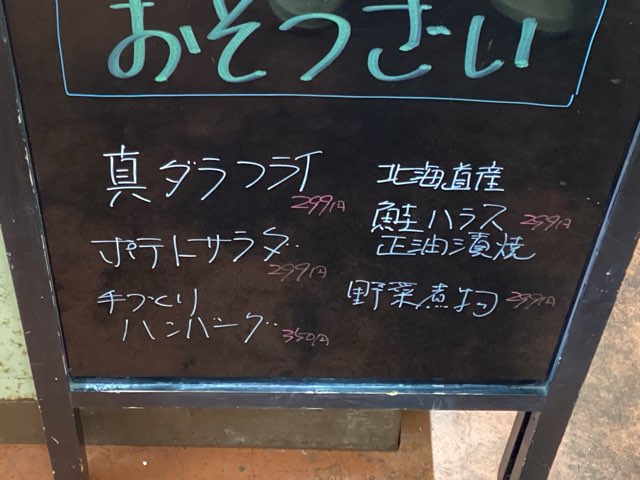 おそうざい
真ダラフライ
299円
ポテトサラダ
299円
手づくり
ハンバーグ
350円
北海道産
鮭ハラス 299円
正油漬焼
野菜煮物 299円